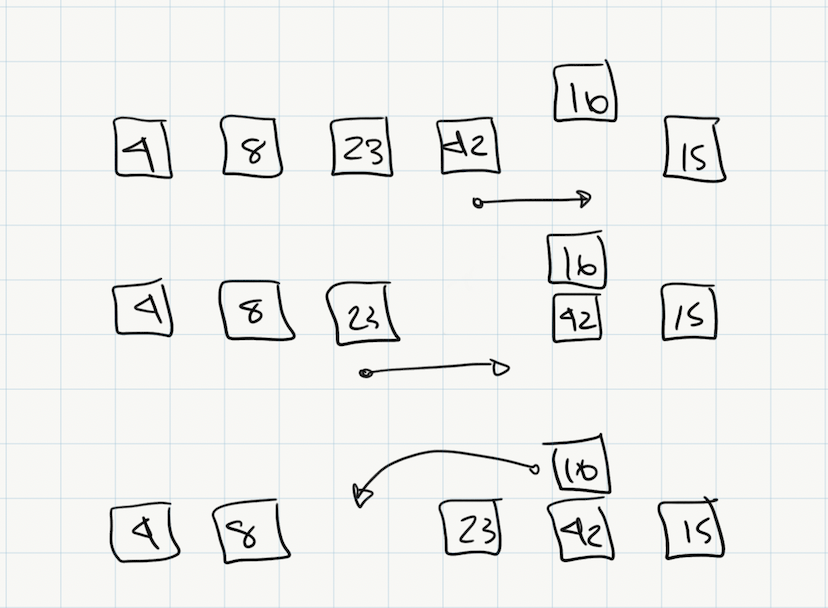 16
4 8 23 42 15
16
4 8 23 42 15
16
4 8 23 42 15